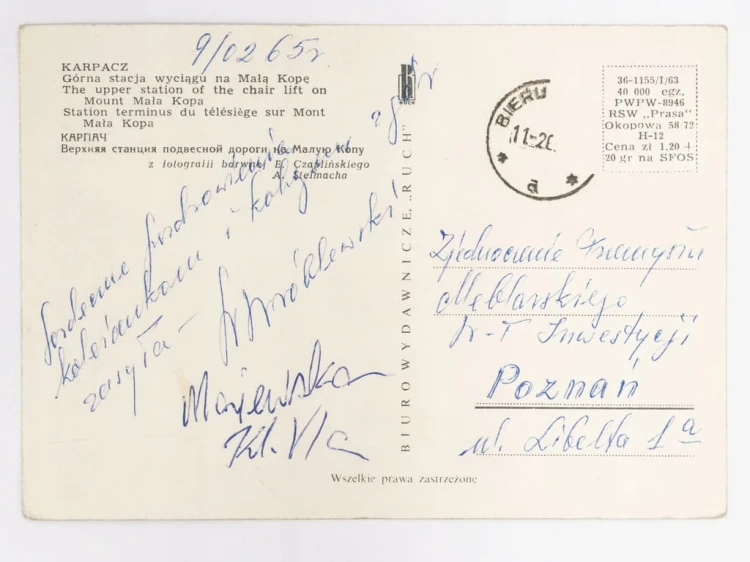 9/02 65r.
KARPACZ
Górna stacja wyciągu na Małą Kopę
The upper station of the chair lift on
Mount Mała Kopa
Station terminus du télésiège sur Mont
Mała Kopa
КАРПАЧ
Верхняя станция подвесной дороги на Малую Копу
z fotografii barwnej E. Czaplińskiego
A. Stelmacha
Serdeczne pozdrowienia
koleżankom i kolegom
zasyła — Wróblewski
Majewska
Kl. VIa
BIURO WYDAWNICZE „RUCH"
RUCH
BIERU
11-26
a
36-1155/I/63
40 000 egz.
PWPW-8946
RSW „Prasa"
Okopowa 58/72
H-12
Cena zł 1,20 +
20 gr na SFOS
Zjednoczenie Przemysłu
Meblarskiego
Inwestycji
Poznań
ul. Libelta 1a
Wszelkie prawa zastrzeżone